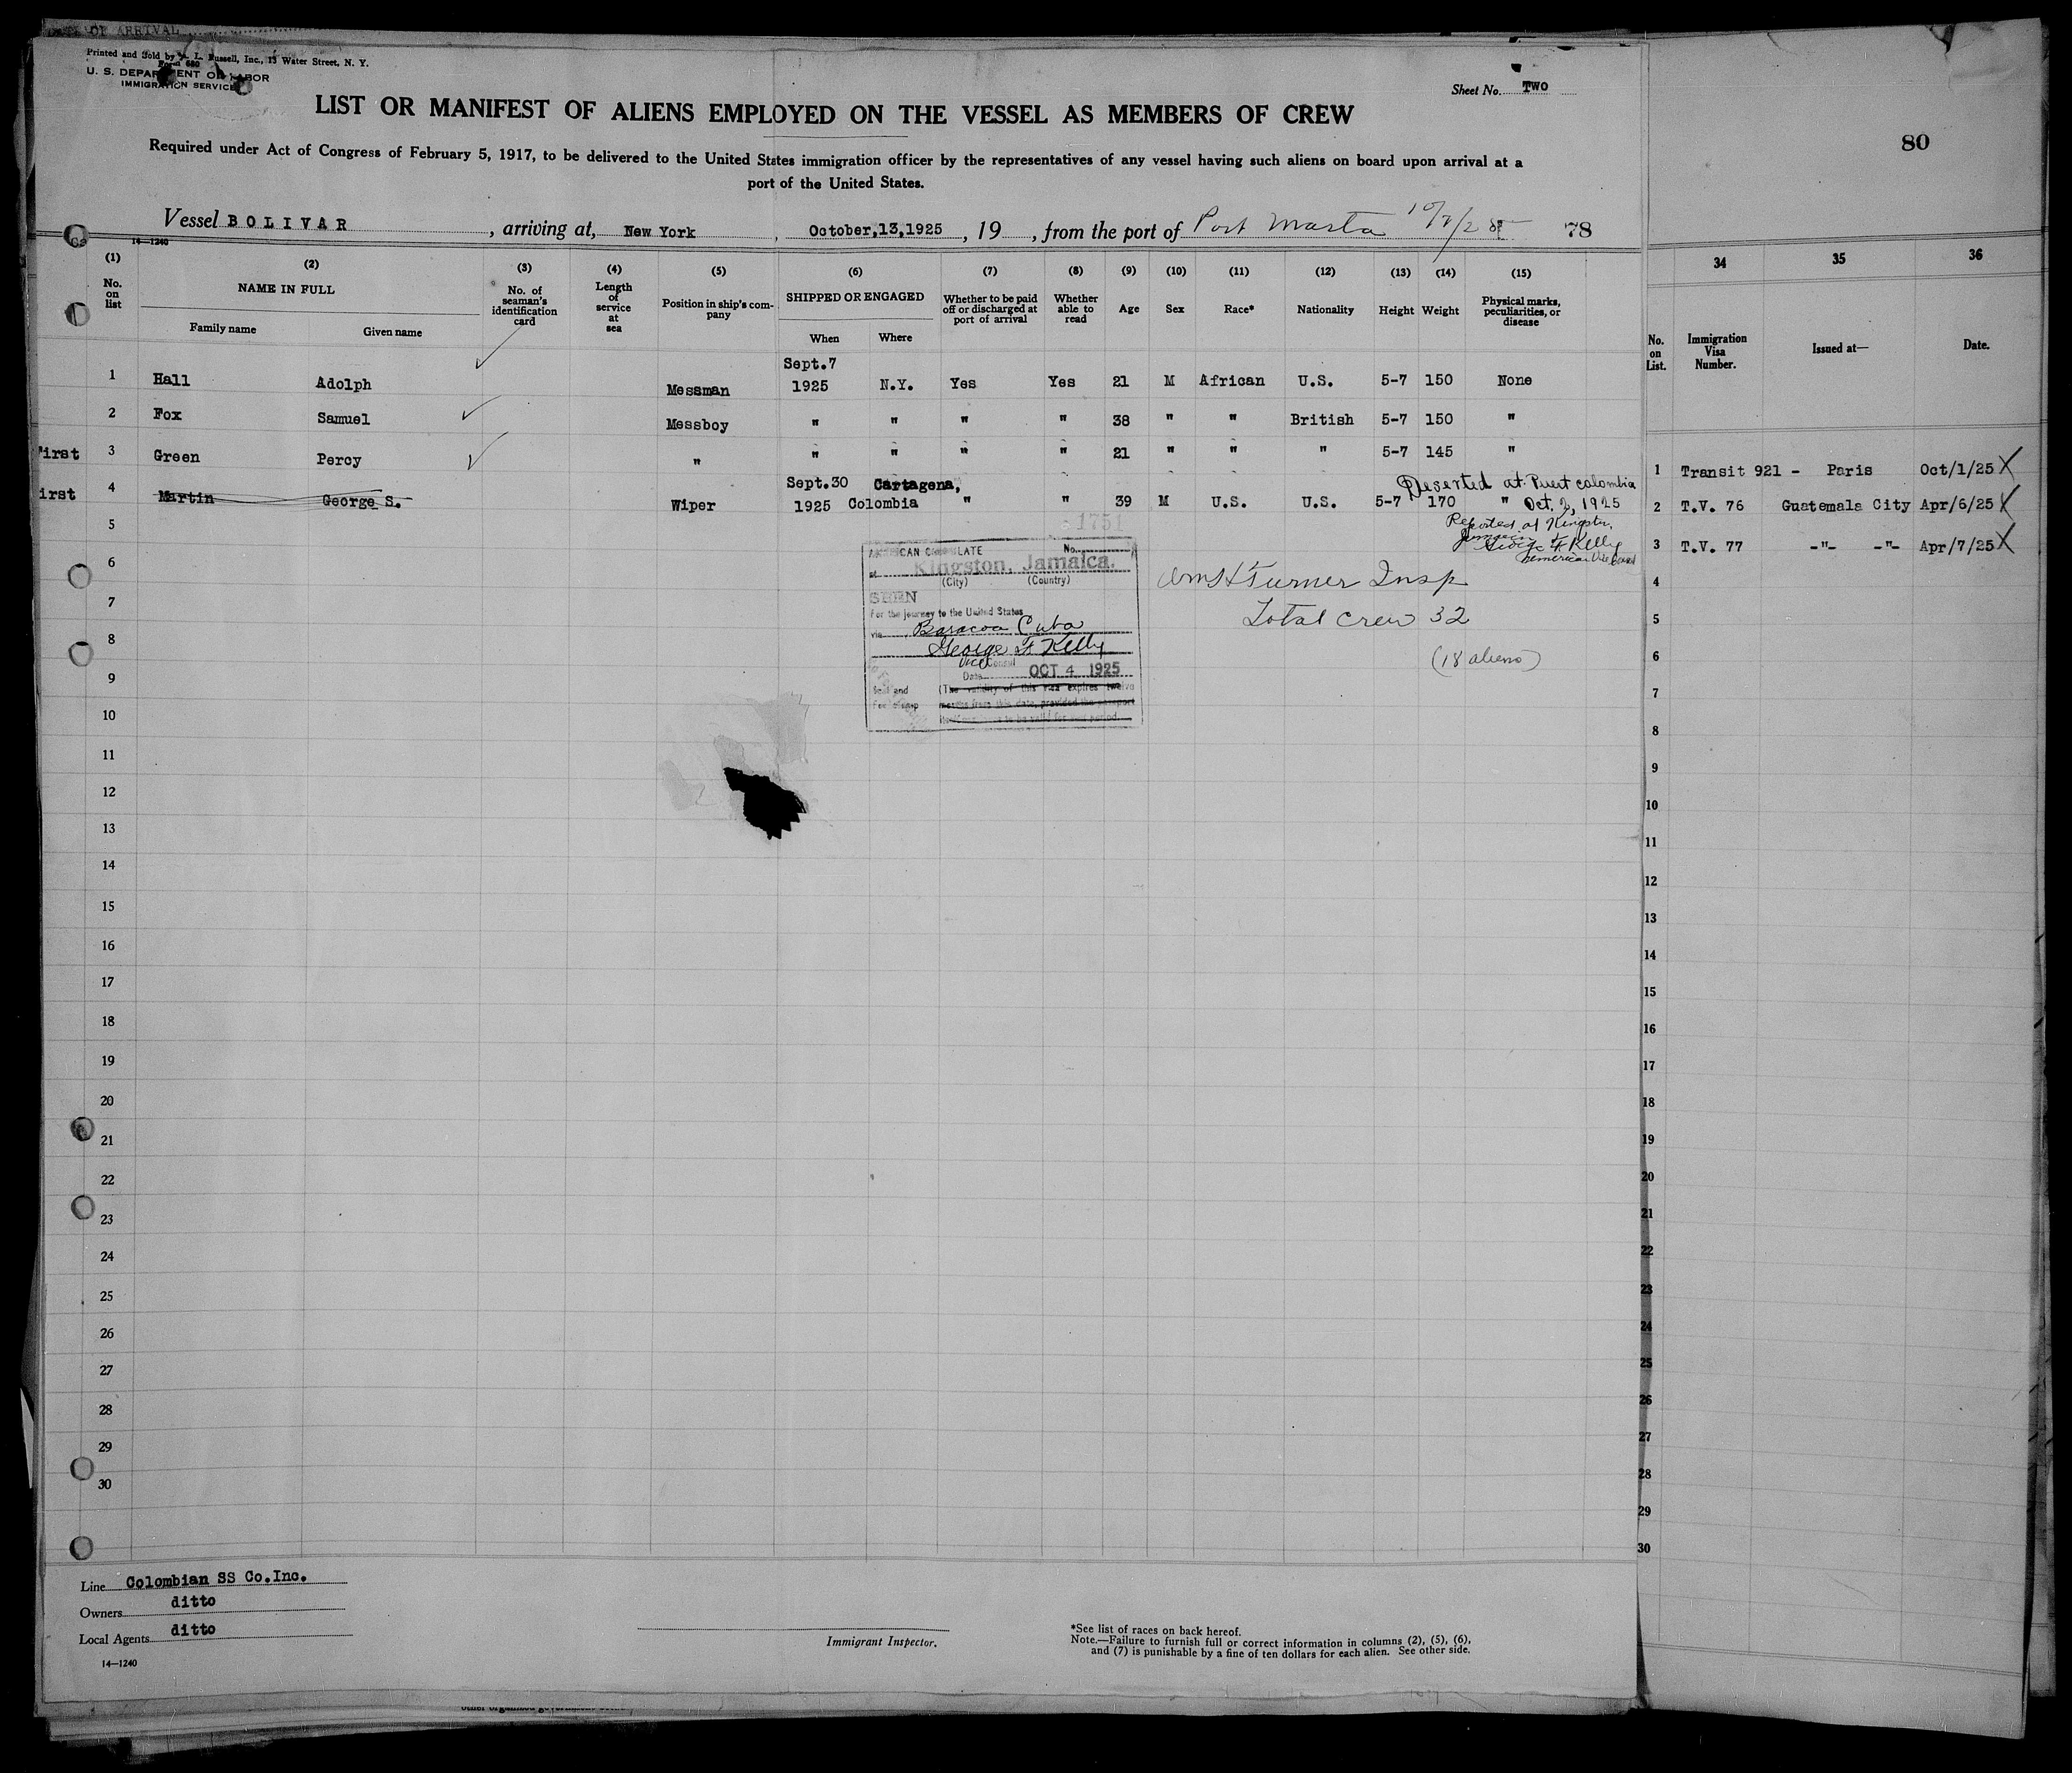 OF ARRIVAL
Printed and Sold by L. Russell, Inc., 13 Water Street, N. Y.
Form 680
U. S. DEPARTMENT OF LABOR
IMMIGRATION SERVICE
Sheet No. TWO
LIST OR MANIFEST OF ALIENS EMPLOYED ON THE VESSEL AS MEMBERS OF CREW
Required under Act of Congress of February 5, 1917, to be delivered to the United States immigration officer by the representatives of any vessel having such aliens on board upon arrival at a
port of the United States.
Vessel BOLIVAR, arriving at, New York, October,13,1925, 19, from the port of Port Marta 78
14—1240
(1) (2) (3) (4) (5) (6) (7) (8) (9) (10) (11) (12) (13) (14) (15)
No. on list
NAME IN FULL
Family name Given name
No. of seaman's identification card
Length of service at sea
Position in ship's company
SHIPPED OR ENGAGED
When Where
Whether to be paid off or discharged at port of arrival
Whether able to read
Age Sex Race* Nationality Height Weight
Physical marks, peculiarities, or disease
1 Hall Adolph Messman Sept.7 1925 N.Y. Yes Yes 21 M African U.S. 5-7 150 None
2 Fox Samuel Messboy " " " " 38 " " British 5-7 150 "
First 3 Green Percy " " " " " 21 " " " 5-7 145 "
irst 4 Martin George S. Wiper Sept.30 1925 Cartagena, Colombia " " 39 M U.S. U.S. 5-7 170 "
Deserted at Puert colombia
Oct. 2, 1925
Reported at Kingston,
Jamaica
George F. Kelly
American Vice Consul
1751
AMERICAN CONSULATE No.
at Kingston, Jamaica.
(City) (Country)
SEEN
For the journey to the United States
via Baracoa Cuba
George F Kelly
Vice Consul
Date OCT 4 1925
Seal and
Fee stamp
(The validity of this visa expires twelve
months from this date, provided the passport
to be valid for that period.
Wm H Turner Insp
Total crew 32
(18 aliens)
5
6
7
8
9
10
11
12
13
14
15
16
17
18
19
20
21
22
23
24
25
26
27
28
29
30
Line Colombian SS Co.Inc.
Owners ditto
Local Agents ditto
14—1240
Immigrant Inspector.
*See list of races on back hereof.
Note.—Failure to furnish full or correct information in columns (2), (5), (6),
and (7) is punishable by a fine of ten dollars for each alien. See other side.
80
34 35 36
No. on List.
Immigration Visa Number.
Issued at—
Date.
1 Transit 921 - Paris Oct/1/25 X
2 T.V. 76 Guatemala City Apr/6/25 X
3 T.V. 77 -"- -"- Apr/7/25 X
4
5
6
7
8
9
10
11
12
13
14
15
16
17
18
19
20
21
22
23
24
25
26
27
28
29
30